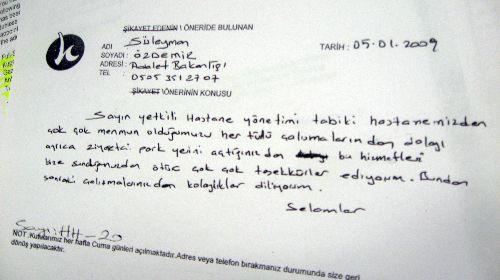 ŞİKAYET EDENİN \ ÖNERİDE BULUNAN
ADI : Süleyman
SOYADI : ÖZDEMİR
ADRESİ : Adalet Bakanlığı
TEL : 0505 351 2707
TARİH : 05.01.2009
ŞİKAYET \ ÖNERİNİN KONUSU
Sayın yetkili Hastane yönetimi tabiki hastanemizden
çok çok memnun olduğumuzu her türlü çalışmalarından dolayı
ayrıca ziyaretçi park yerini açtığınızdan bu hizmetleri
bize sunduğunuzdan ötürü çok çok teşekkürler ediyorum. Bundan
sonraki çalışmalarınızda kolaylıklar diliyorum.
Selamlar
Sayı: HH-20
NOT: Kutularımız her hafta Cuma günleri açılmaktadır. Adres veya telefon bırakmanız durumunda size geri
dönüş yapılacaktır.